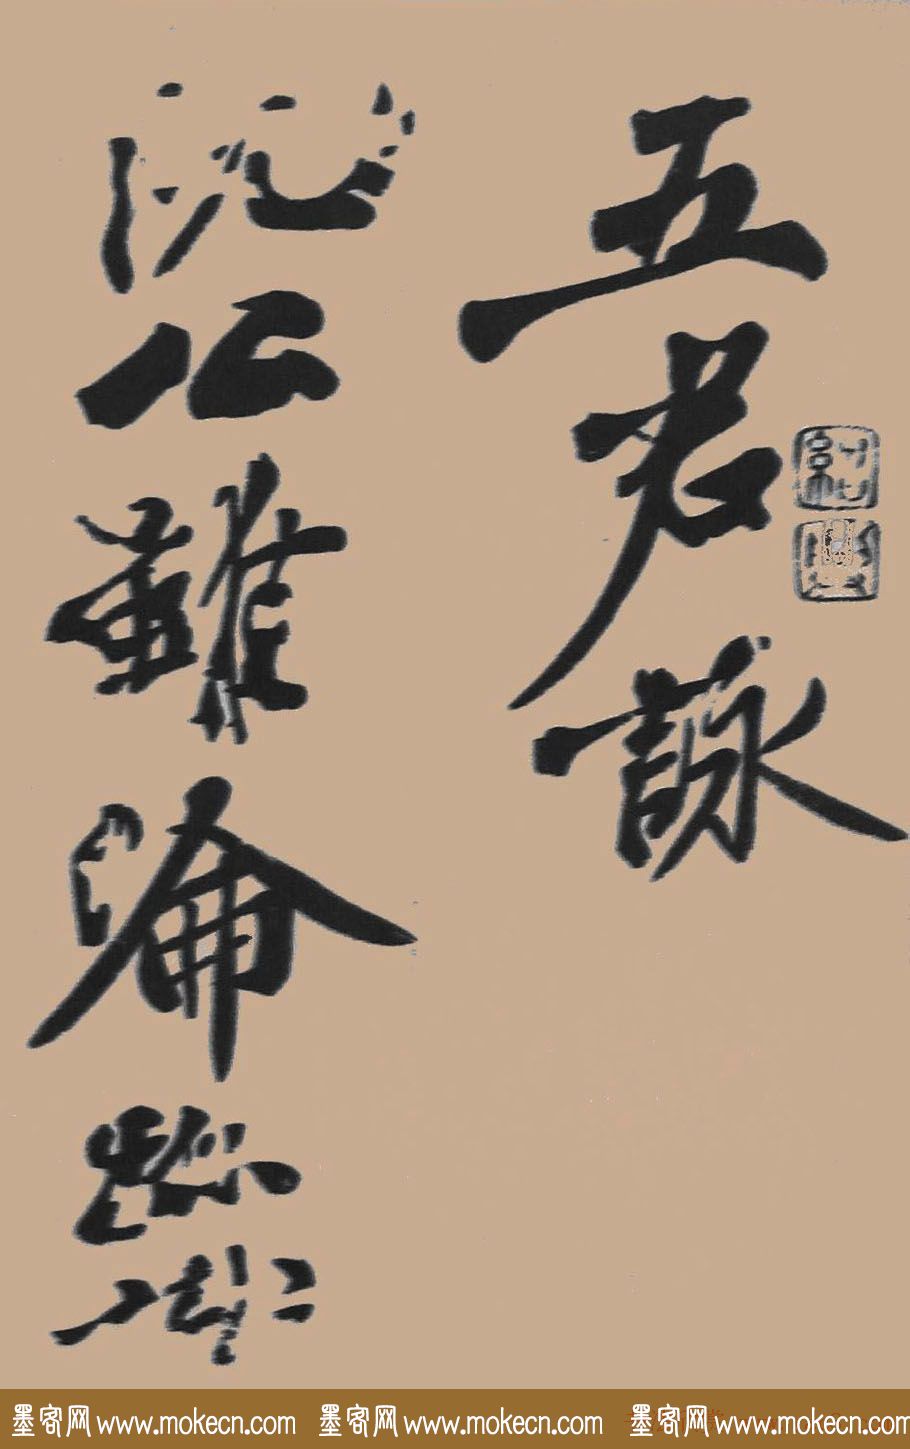 五君詠
阮公雖淪跡
墨客网 www.mokecn.com 墨客网 www.mokecn.com 墨客网 www.mokecn.com